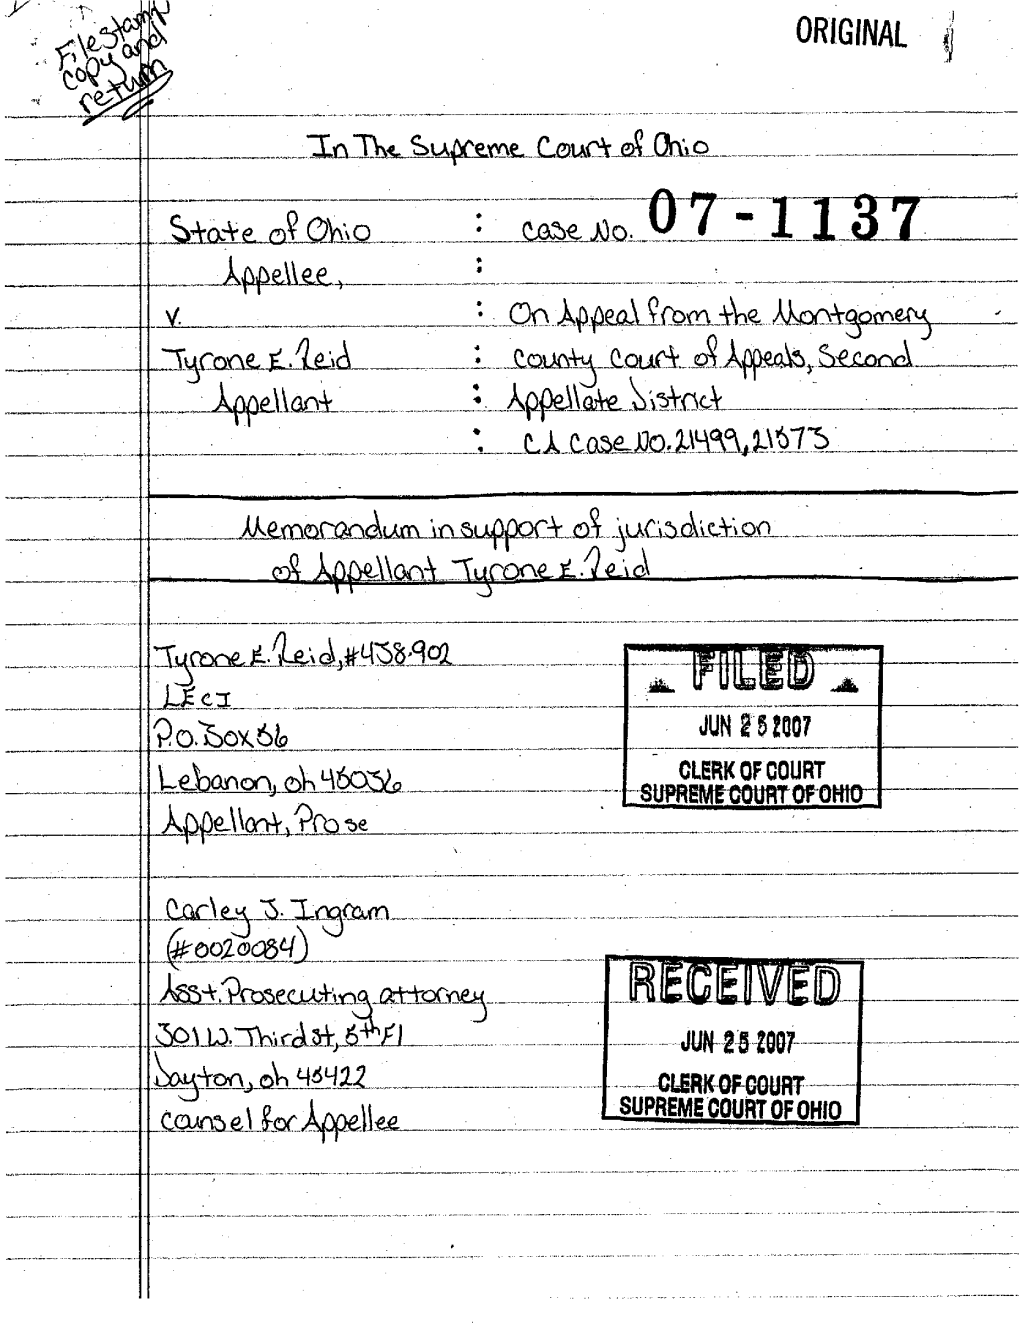 Filestamp
copy and
return
ORIGINAL
In The Supreme Court of Ohio
State of Ohio : case No. 07-1137
Appellee, :
v. : On Appeal from the Montgomery
Tyrone E. Reid : County Court of Appeals, Second
Appellant : Appellate District
: CA Case No. 21499, 21573
Memorandum in support of jurisdiction
of Appellant Tyrone E. Reid
Tyrone E. Reid, #458-902
LECI
P.O. Box 56
Lebanon, oh 45036
Appellant, Pro se
FILED
JUN 25 2007
CLERK OF COURT
SUPREME COURT OF OHIO
Carley J. Ingram
(#0020084)
Asst. Prosecuting attorney
301 W. Third St, 5th Fl
Dayton, oh 45422
counsel for Appellee
RECEIVED
JUN 25 2007
CLERK OF COURT
SUPREME COURT OF OHIO